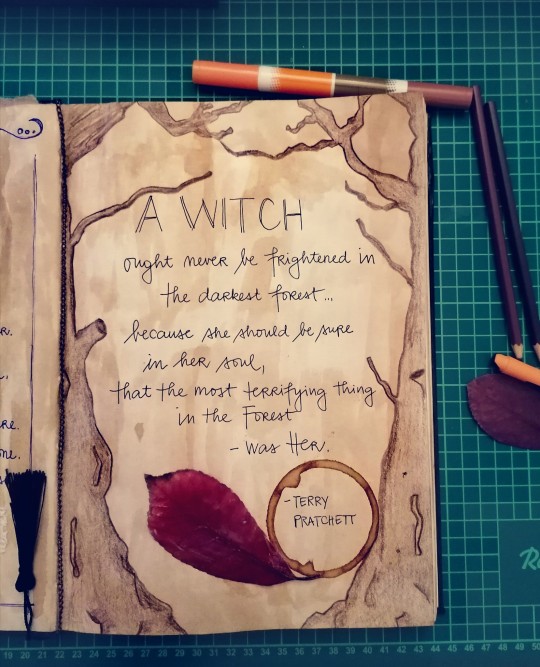 A WITCH
ought never be frightened in
the darkest forest...
because she should be sure
in her soul,
that the most terrifying thing
in the Forest
- was Her.
- TERRY
PRATCHETT
19 20 21 22 23 24 25 26 27 28 29 30 31 32 33 34 35 36 37 38 39 40 41 42 43 44 45 46 47 48 49 50